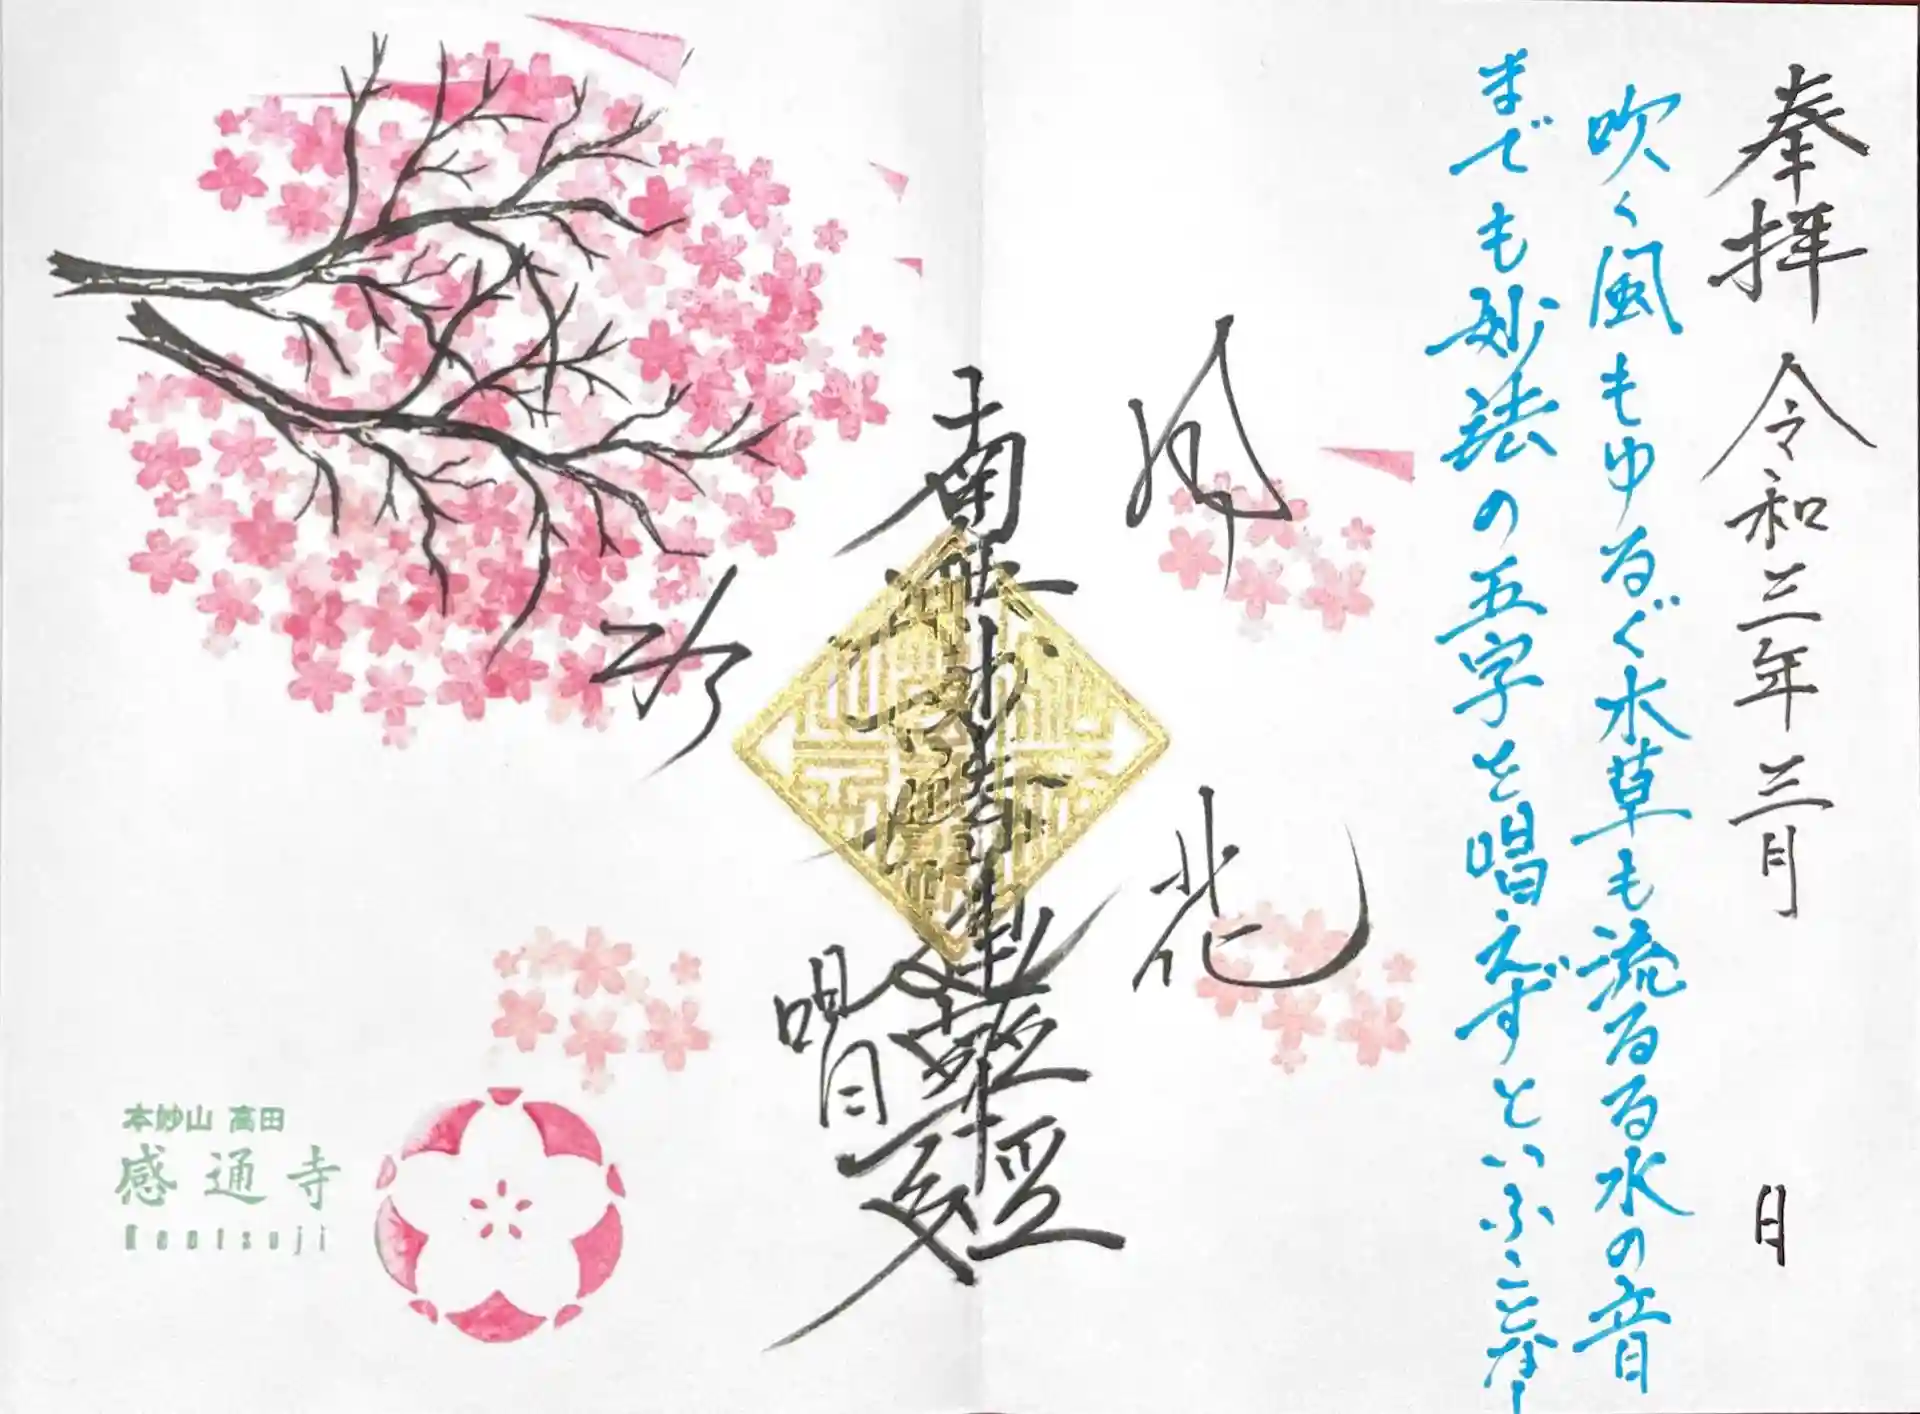 奉拝 令和三年三月 日
吹く風もゆるぐ木草も流るる水の音
までも妙法の五字を唱えずといふことなし
風
花
南無妙法蓮華経
唱
本妙山 高田
感通寺